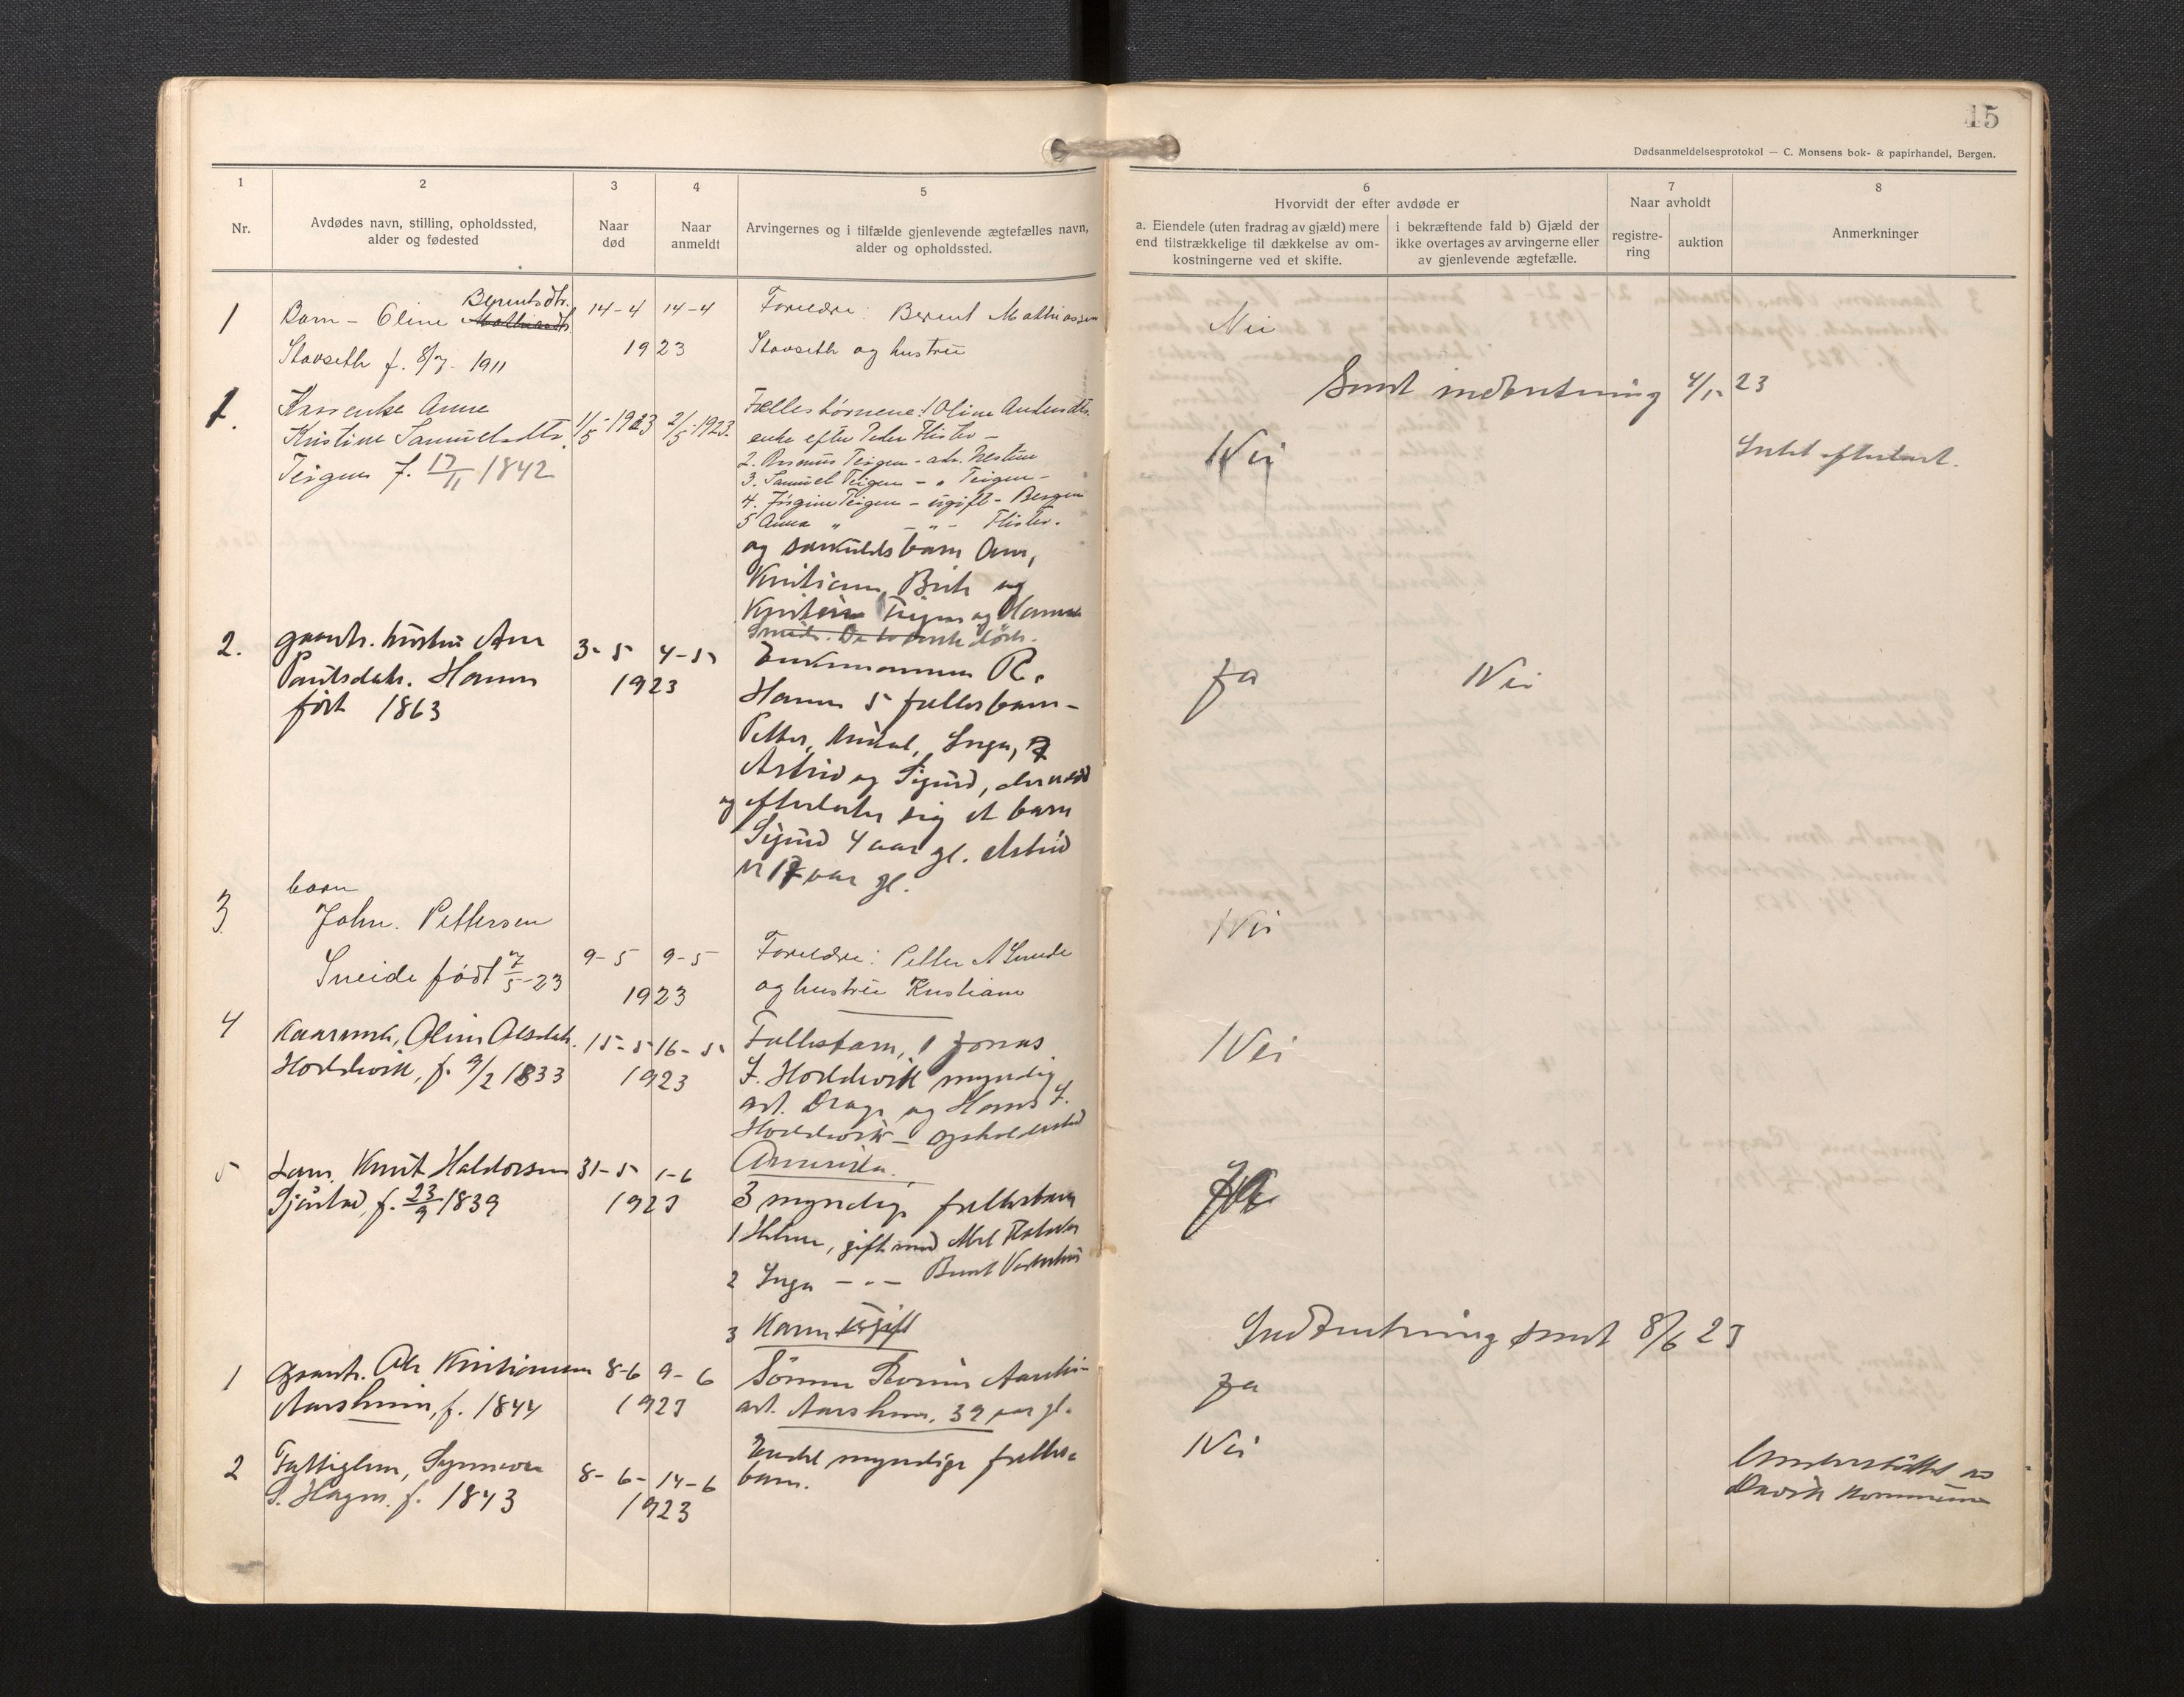 15
Dødsanmeldelsesprotokol — C. Monsens bok- & papirhandel, Bergen.
1
Nr.
2
Avdødes navn, stilling, opholdssted,
alder og fødested
3
Naar
død
4
Naar
anmeldt
5
Arvingernes og i tilfælde gjenlevende ægtefælles navn,
alder og opholdssted.
6
Hvorvidt der efter avdøde er
a. Eiendele (uten fradrag av gjæld) mere
end tilstrækkelige til dækkelse av om-
kostningerne ved et skifte.
i bekræftende fald b) Gjæld der
ikke overtages av arvingerne eller
av gjenlevende ægtefælle.
7
Naar avholdt
registre-
ring
auktion
8
Anmerkninger
1
Berentsdtr.
Barn - Oline
Stavseth f. 8/7 - 1911
14-4 14-4
1923
Forældre: Berent Mathiassen
Stavseth og hustru
Nei
Sendt indberetning 4/5 23
1.
Anne
Kristine Samuelsdtr.
Teigen f. 17/11 1842
1/5-1923 2/5-1923.
Fællesbørnene: 1 Oline Andersdtr.
enke efter Peder Flister -
2. Rasmus Teigen - adr.
3. Samuel Teigen - " Teigen -
4. Jørgine Teigen - ugift - Bergen
5 Anna " - " - Flister.
og særkuldsbarn
Brite og
Teigen og
Nei
Intet efterladt.
2.
gaardbr. hustru Ane
Paulsdatr. Hamn
født 1863
3-5 4-5
1923
Enkemannen R.
Hamn 5 fællesbarn -
Petter, Mikal, Inga,
Astrid og Sigurd,
og efterlater sig et barn
Sigurd 4 aar gl. Astrid
er 17 aar gl.
Ja
Nei
3
barn
John. Pettersen
Sneide født 7/5-23
9-5 9-5
1923
Forældre: Petter A Sneide
og hustru Kristiane
Nei
4
Oline Olsdatr.
Hordvik, f. 9/2 1833
15-5 16-5
1923
Fællesbarn, 1 Jonas
J. myndig
og Hans J.
- opholdssted
Amerika.
Nei
5
Knut Haldorsen
f. 23/9 1839
31-5 1-6
1923
3 myndige fællesbarn
1 Helene, gift med
2 Inga - " - Berent
3 Karen ugift
Ja
Indberetning sendt 8/6 23
1
gaardbr. Ole Kristiansen
Aarsheim, f. 1844
8-6 9-6
1923
Sønnen
Aarsheim, 39 aar gl.
Ja
2
Fattiglem, Synneva
S. Hagen. f. 1843
8-6- 14-6
1923
Endel myndige fælles-
barn.
Nei
Understøttet av
Davik kommune